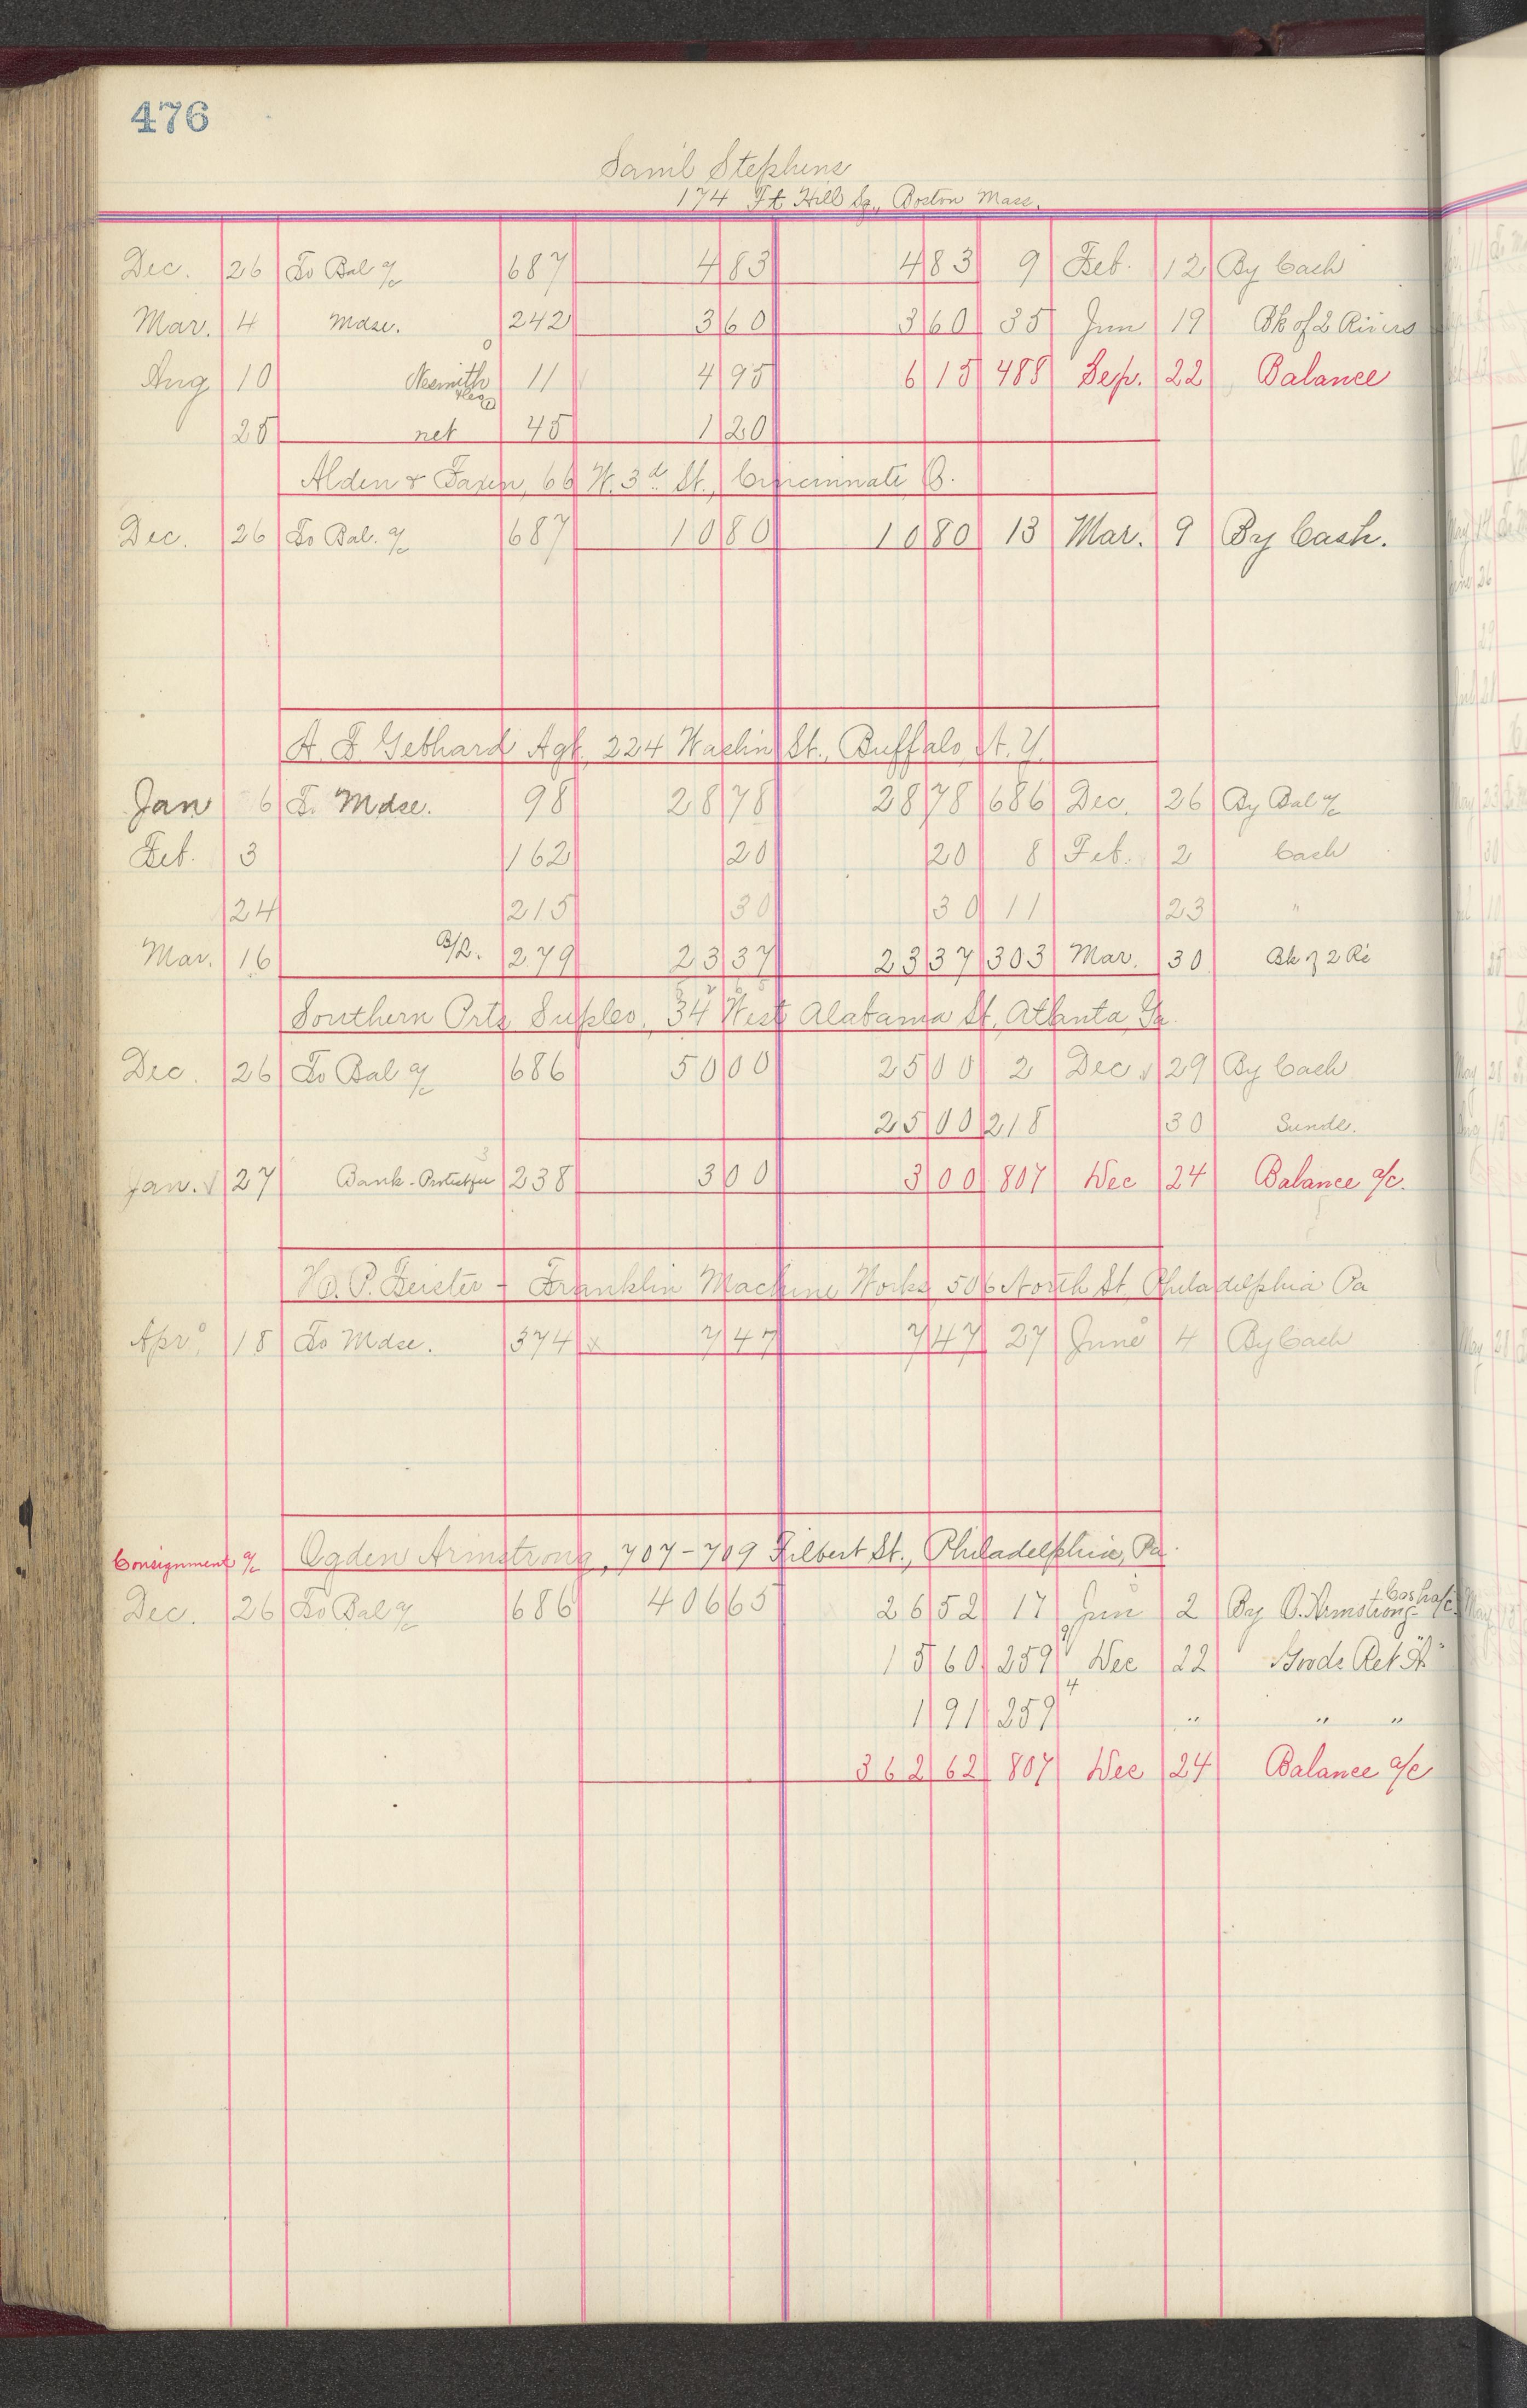 476
Saml Stephens
174 Ft Hill Sq., Boston Mass.
Dec. 26 To Bal a/c 687 4 83 4 83 9 Feb. 12 By Cash
Mar. 4 Mdse. 242 3 60 3 60 35 Jun 19 Bk of 2 Rivers
Aug 10 Nesmith 11 4 95 6 15 488 Sep. 22 Balance
25 net 45 1 20
Alden & Faxen, 66 W. 3d St., Cincinnate O.
Dec. 26 To Bal. a/c 687 10 80 10 80 13 Mar. 9 By Cash.
A. F. Gebhard Agt. 224 Washin St., Buffalo, N.Y.
Jan 6 To Mdse. 98 28 78 28 78 686 Dec. 26 By Bal a/c
Feb. 3 162 20 20 8 Feb. 2 Cash
24 215 30 30 11 23 "
Mar. 16 279 23 37 23 37 303 Mar. 30 Bk of 2 Ri
Southern Prts Suples, 34 West Alabama St, Atlanta Ga.
Dec. 26 To Bal a/c 686 50 00 25 00 2 Dec 29 By Cash
25 00 218 30 Sunds.
Jan. 27 Bank - 238 3 00 3 00 807 Dec 24 Balance a/c.
H. P. Feister - Franklin Machine Works, 506 North St Philadelphia Pa
Apr 18 To Mdse. 374 x 7 47 7 47 27 June 4 By Cash
Consignment a/c Ogden Armstrong, 707-709 Filbert St., Philadelphia, Pa.
Dec. 26 To Bal a/c 686 406 65 26 52 17 Jun 2 By O. Armstrong Cash a/c
15 60 259 Dec 22 Goods Ret "A"
1 91 259 4 " " "
362 62 807 Dec 24 Balance a/c